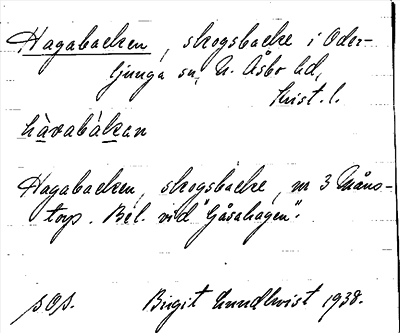 Hagabacken, skogsbacke i Oder-
ljunga sn, N. Åsbo hd,
Krist. l.
hàvabàkan
Hagabacken, skogsbacke, nr 3 Måns-
torp. Bel. vid "Gåsahagen".
s. 08.
Birgit Lundkvist 1938.